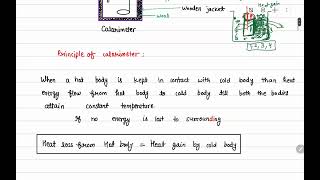 Wooden jacket
wool
Calorimeter
Heat gain
1, 2, 3, 4
Principle of calorimeter :
When a hot body is kept in contact with cold body than heat
energy flow from hot body to cold body till both the bodies
attain constant temperature
If no energy is lost to surrounding
Heat loss from Hot body = Heat gain by cold body